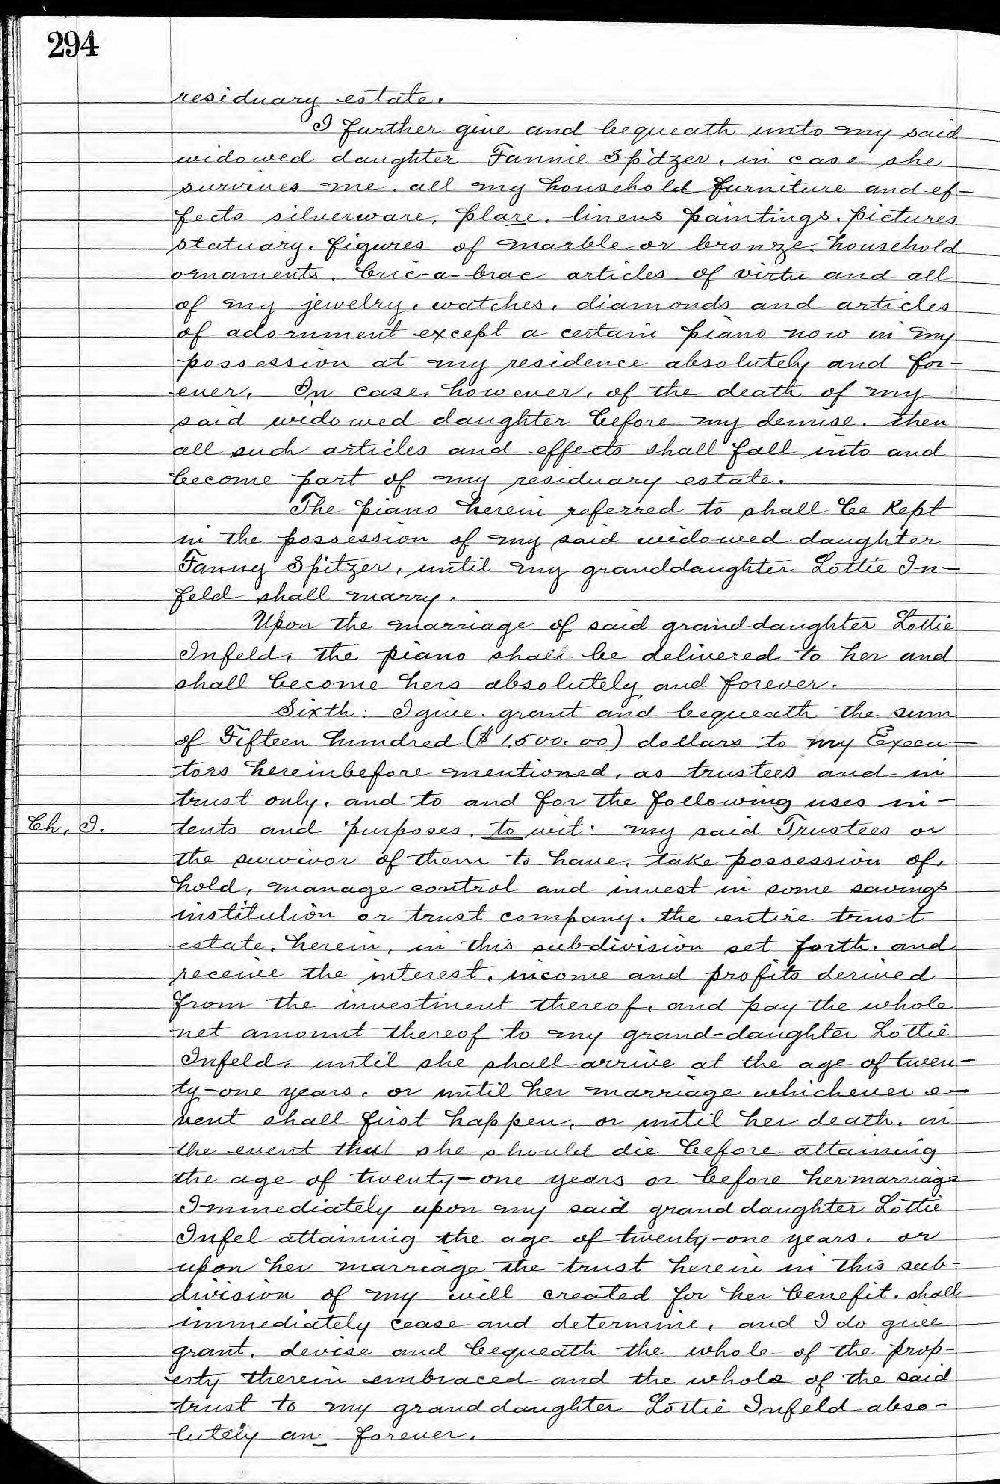 294
residuary estate.
I further give and bequeath unto my said
widowed daughter Fannie Spitzer, in case she
survives me, all my household furniture and ef-
fects silverware, plare, linens paintings, pictures
statuary, figures of marble or bronze, household
ornaments, bric-a-brac articles of virtu and all
of my jewelry, watches, diamonds and articles
of adornment except a certain piano now in my
possession at my residence absolutely and for-
ever. In case, however, of the death of my
said widowed daughter before my demise, then
all such articles and effects shall fall into and
become part of my residuary estate.
The piano herein referred to shall be kept
in the possession of my said widowed daughter
Fanny Spitzer, until my granddaughter Lottie In-
feld shall marry.
Upon the marriage of said granddaughter Lottie
Infeld, the piano shall be delivered to her and
shall become hers absolutely and forever.
Sixth: I give, grant and bequeath the sum
of Fifteen hundred ($1,500.00) dollars to my Execu-
tors hereinbefore mentioned, as trustees and in
trust only, and to and for the following uses in-
Ch. I. tents and purposes, to wit: my said Trustees or
the survivor of them to have, take possession of,
hold, manage control and invest in some savings
institution or trust company, the entire trust
estate, herein, in this subdivision set forth, and
receive the interest, income and profits derived
from the investment thereof, and pay the whole
net amount thereof to my grand-daughter Lottie
Infeld, until she shall arrive at the age of twen-
ty-one years, or until her marriage whichever e-
vent shall first happen, or until her death, in
the event that she should die before attaining
the age of twenty-one years or before her marriage
Immediately upon my said granddaughter Lottie
Infel attaining the age of twenty-one years, or
upon her marriage the trust herein in this sub-
division of my will created for her benefit, shall
immediately cease and determine, and I do give
grant, devise and bequeath the whole of the prop-
erty therein embraced and the whole of the said
trust to my granddaughter Lottie Infeld abso-
lutely an forever.